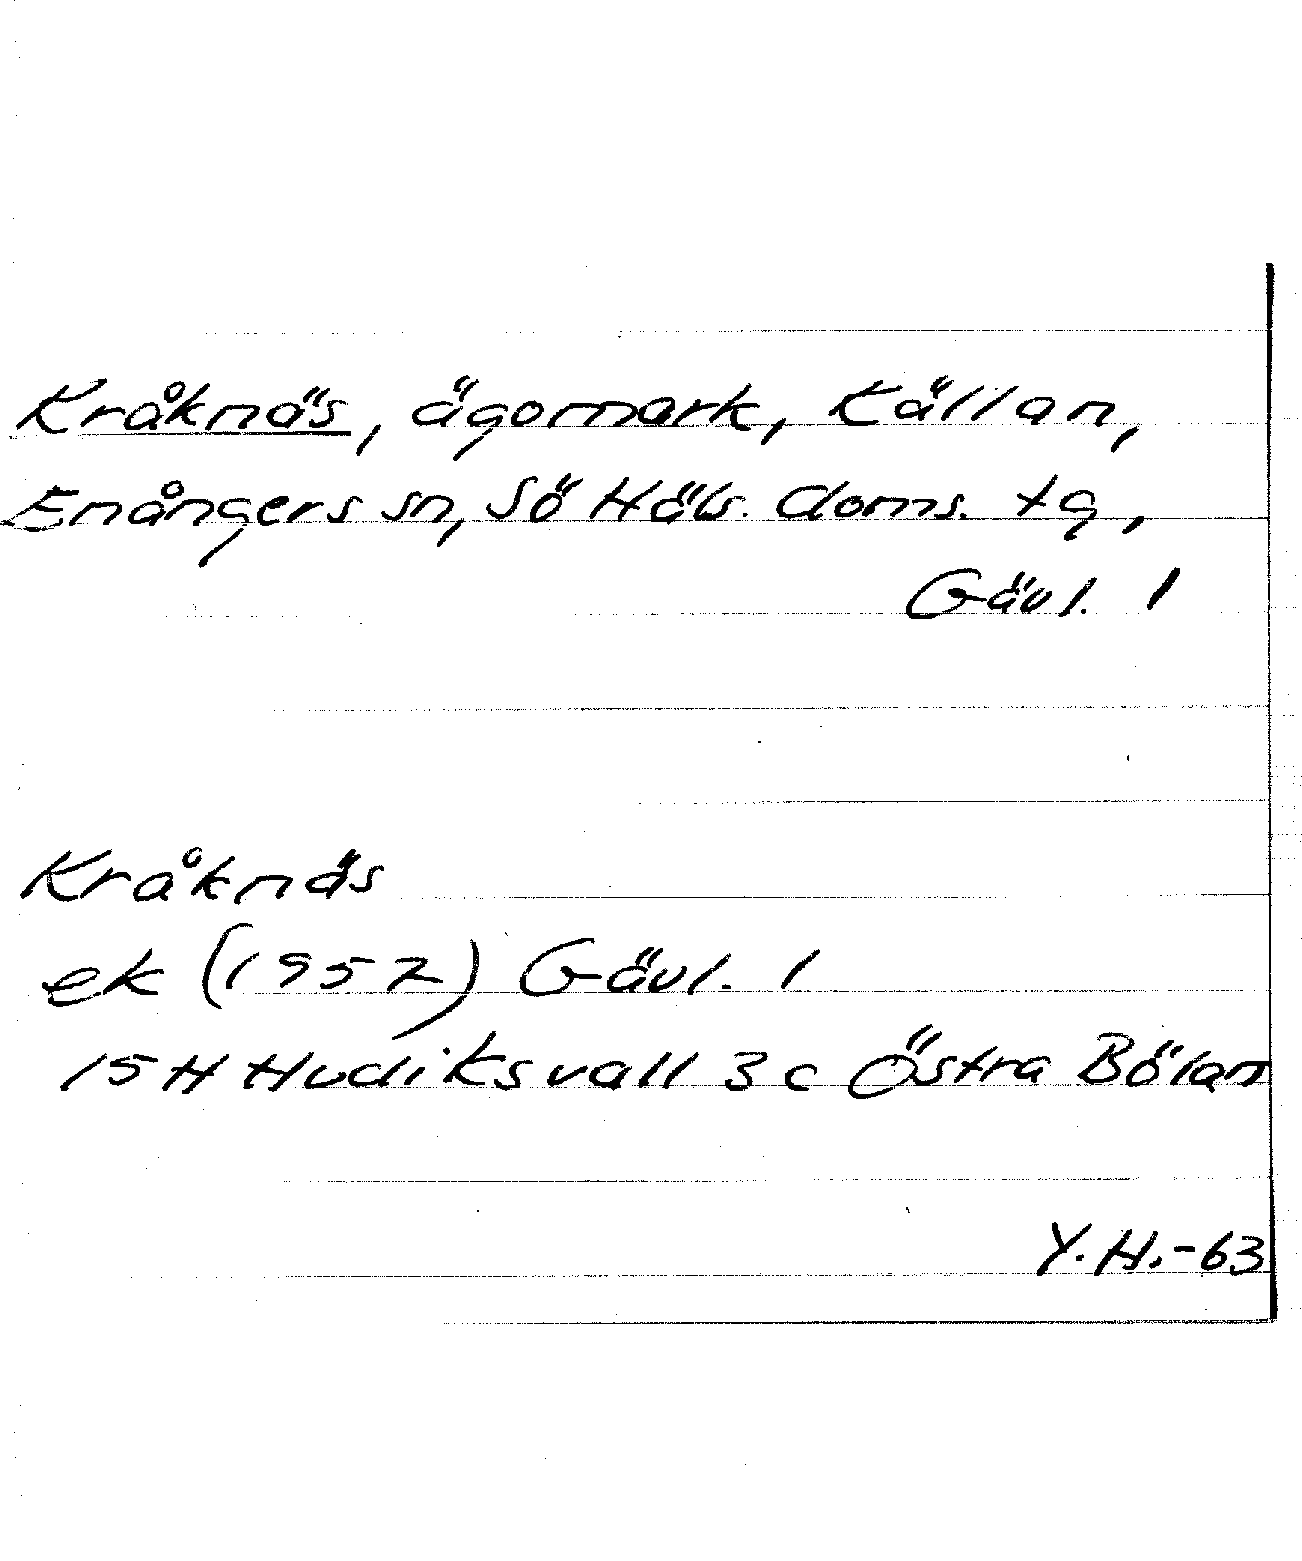 Kråknäs, ägomark, Källan,
Enångers sn, Sö Häls. doms. tg,
Gävl. l
Kråknäs
ek (1957) Gävl. l
15 H Hudiksvall 3 c Östra Bölan
Y.H.-63